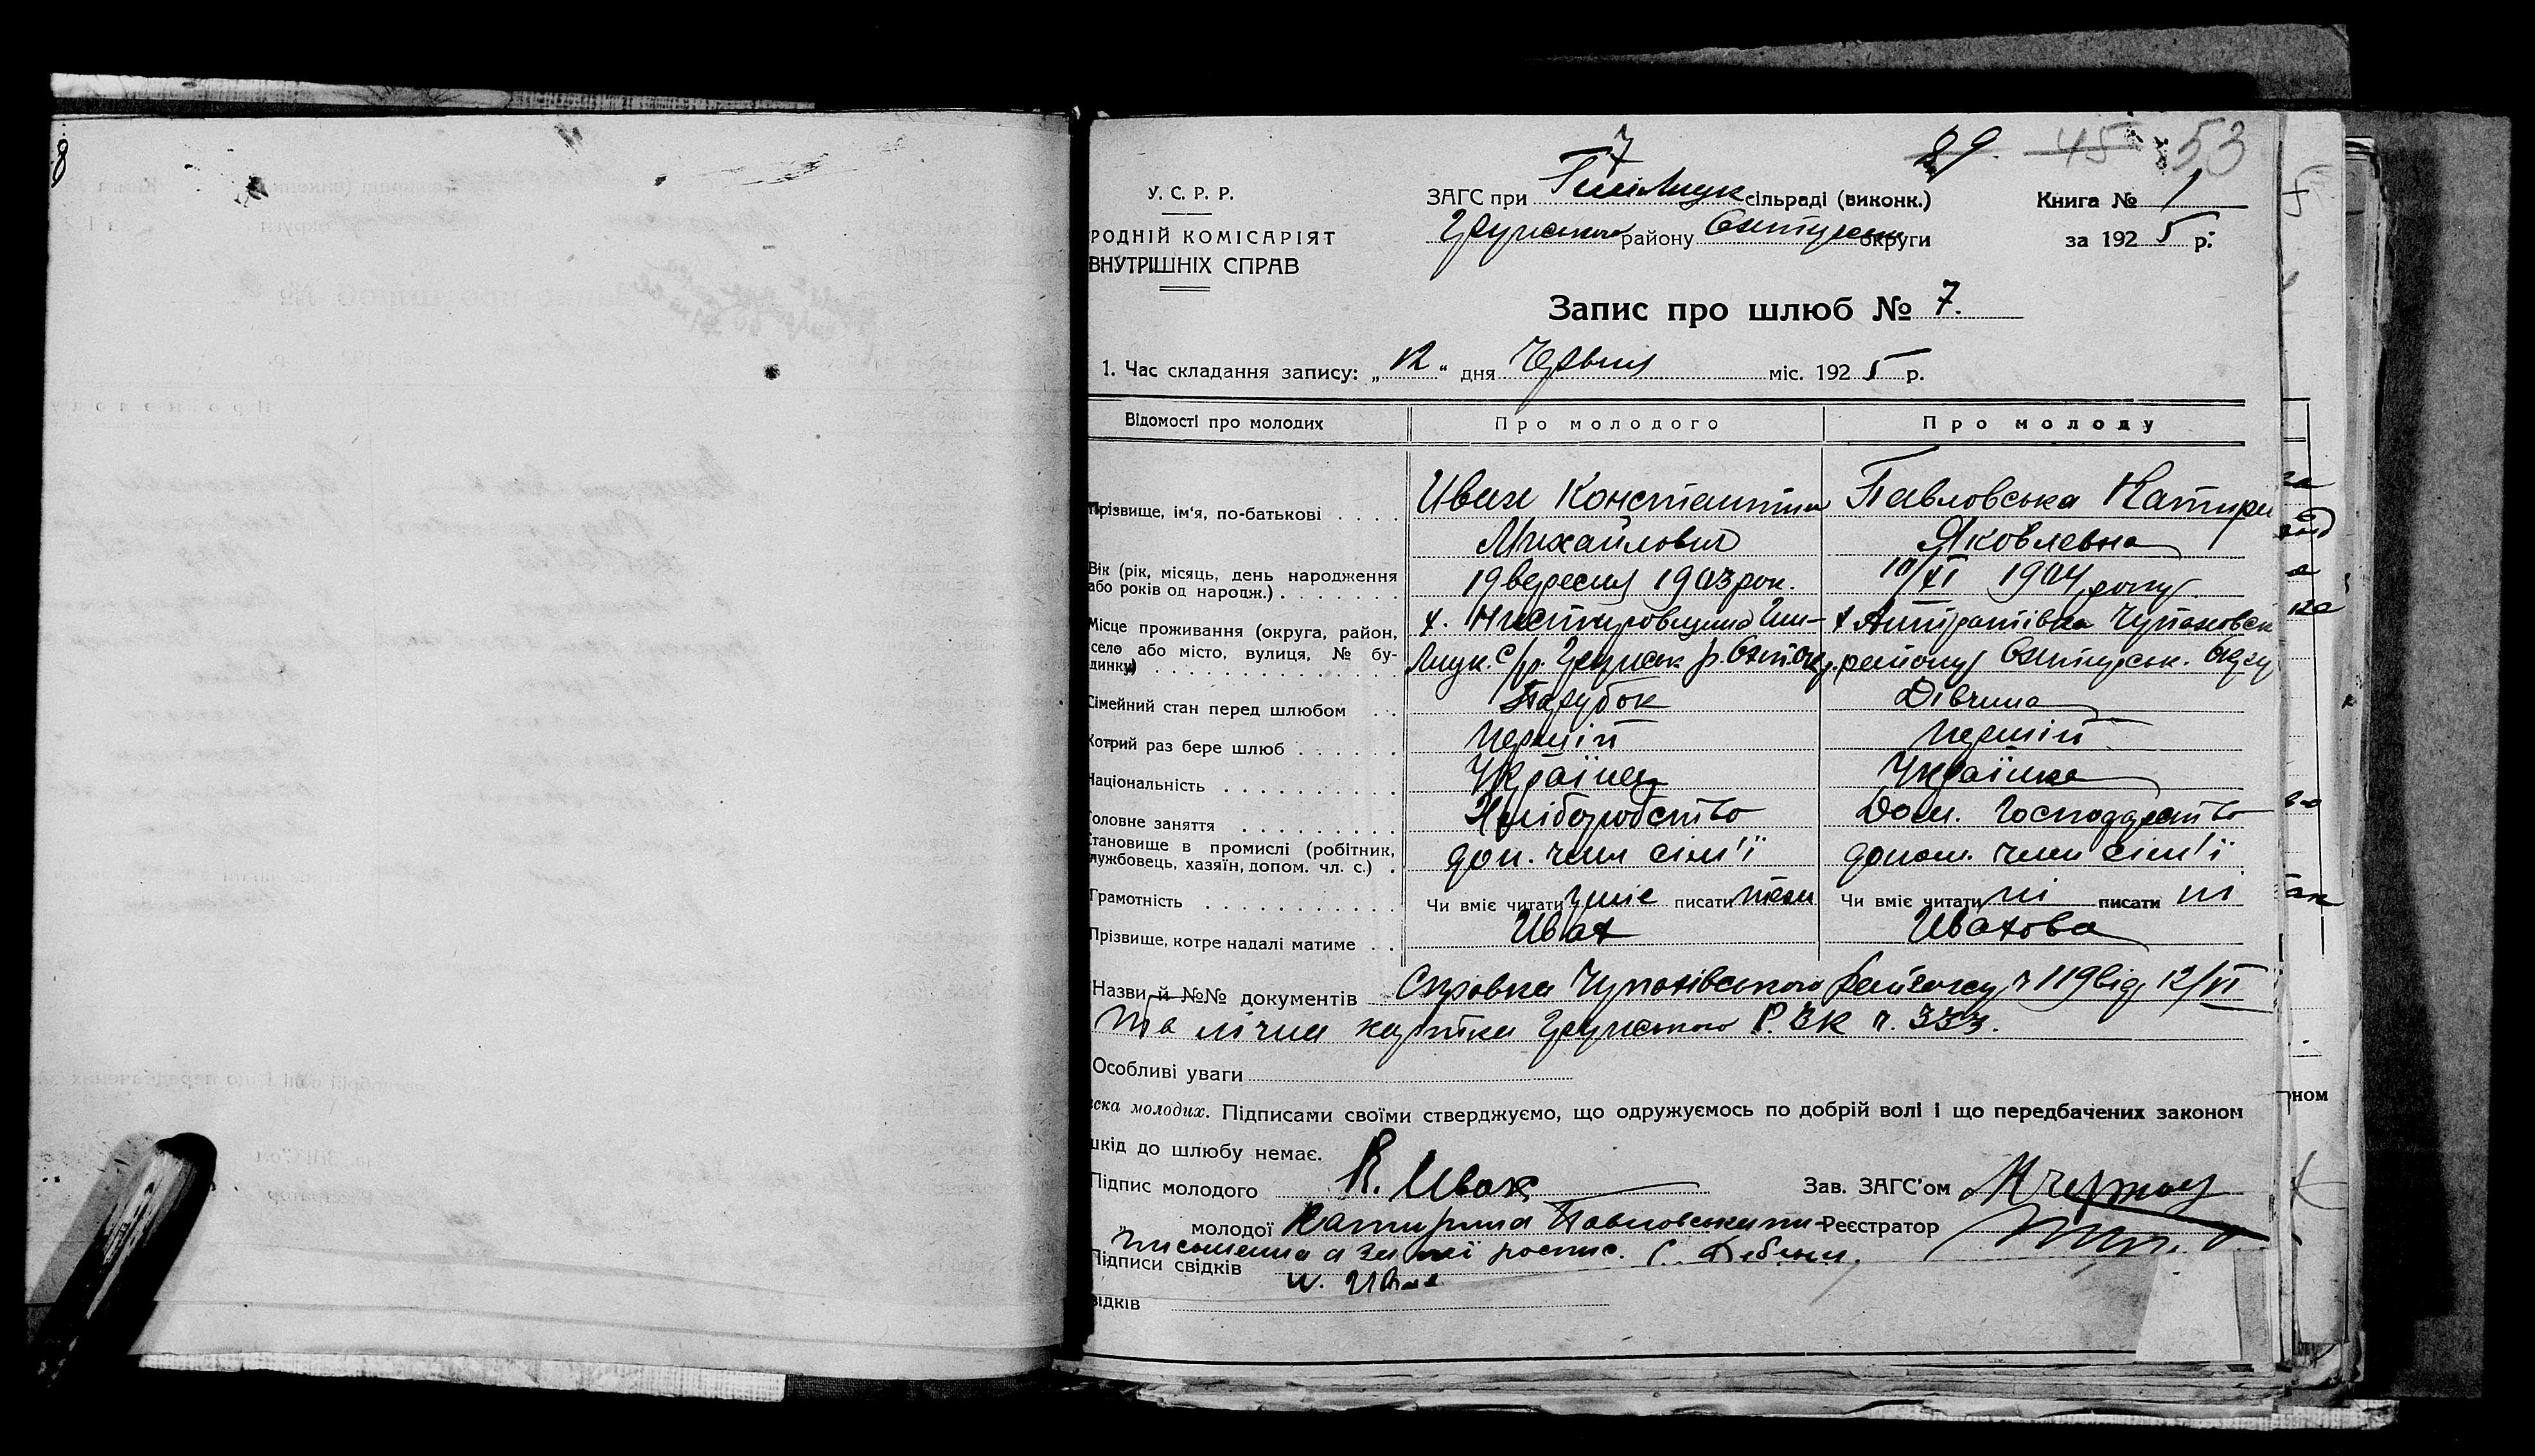 7
29. 45 53
У. С. Р. Р.
РОДНІЙ КОМІСАРІЯТ
ВНУТРІШНІХ СПРАВ
ЗАГС при сільраді (виконк.)
Грунського району Охтирськ округи
Книга № 1
за 1925 р.
Запис про шлюб № 7.
1. Час складання запису: „12“ дня Червня міс. 1925 р.
Відомості про молодих Про молодого Про молоду
Прізвище, ім'я, по-батькові Ивах Константин Павловська Катери
Михайлович Яковлевна
Вік (рік, місяць, день народження або років од народж.) 19 вересня 1903 рок. 10/XI 1904 року
Місце проживання (округа, район, х. х Чупаховск
село або місто, вулиця, № бу- с/р. Грунськ р. району Охтирськ.
динку)
Сімейний стан перед шлюбом Парубок Дівчина
Котрий раз бере шлюб перший перший
Національність Українец Українка
Головне заняття Хліборобство Дом. Господарство
Становище в промислі (робітник,
службовець, хазяїн, допом. чл. с.) доп. член сім'ї допом. член сім'ї
Грамотність Чи вміє читати уміє писати Чи вміє читати ні писати ні
Прізвище, котре надалі матиме Ивах Ивахова
Назви й №№ документів Справка Чупахівського ч 119 від 12/VI
та картка Грунського ч. 333.
Особливі уваги
ска молодих. Підписами своїми стверджуємо, що одружуємось по добрій волі і що передбачених законом
шкід до шлюбу немає.
Підпис молодого К. Ивах Зав. ЗАГС'ом
„ молодої Катерина Павловська Реєстратор
письменна а за неї роспис.
Підписи свідків
відків